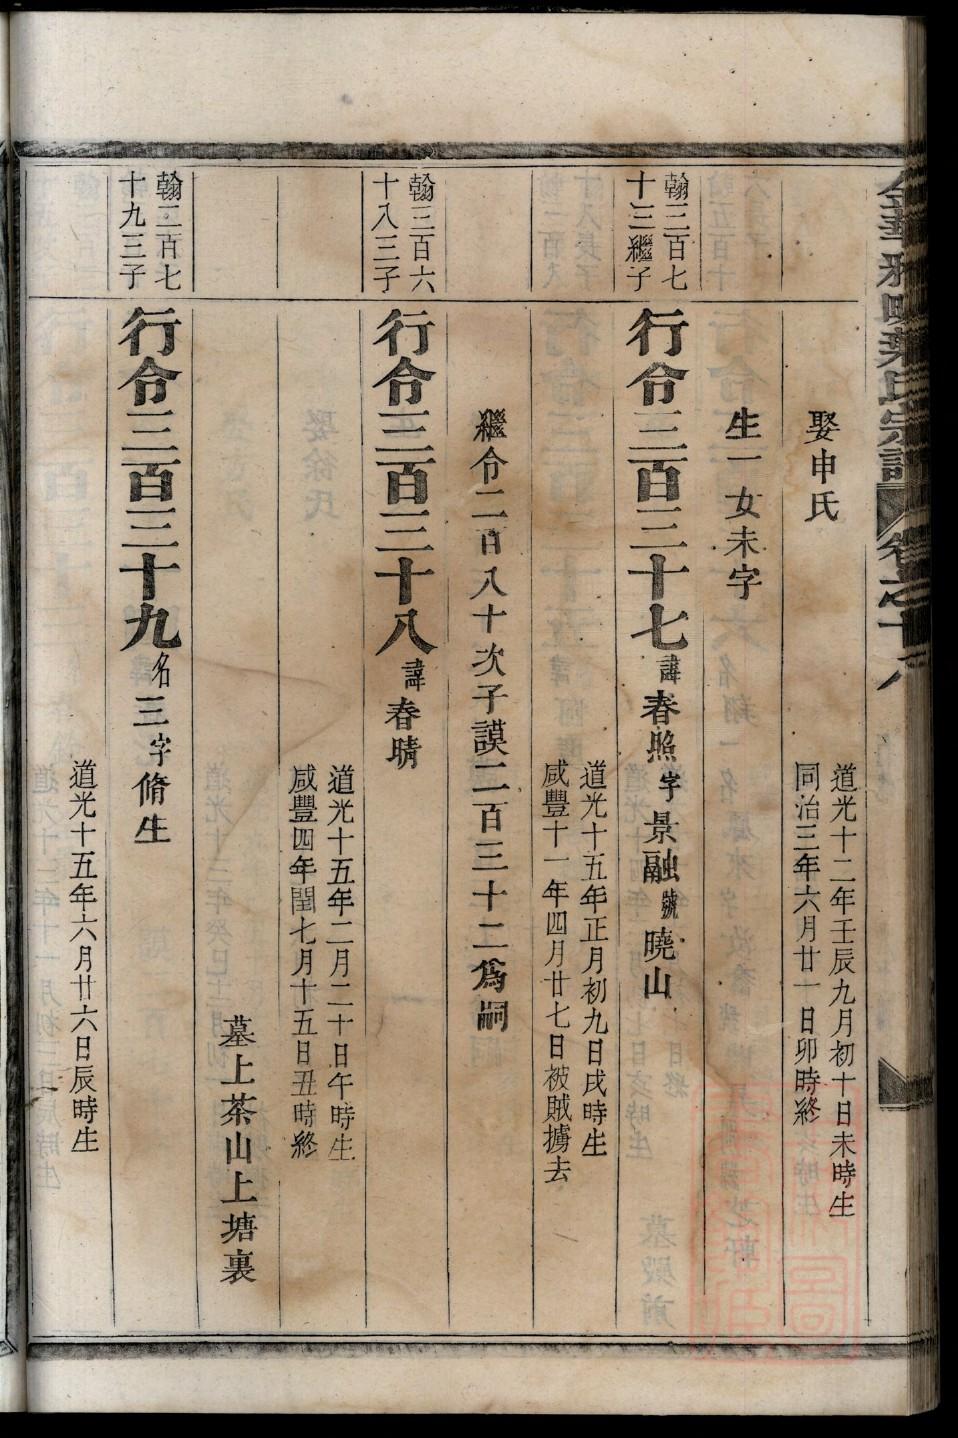 娶申氏
道光十二年壬辰九月初十日未時生
同治三年六月廿一日卯時終
生一女未字
翰三百七
十三繼子
行令三百三十七諱春照字景融號曉山
道光十五年正月初九日戌時生
咸豐十一年四月廿七日被賊擄去
繼令二百八十次子謨二百三十二爲嗣
翰三百六
十八三子
行令三百三十八諱春晴
道光十五年二月二十日午時生
咸豐四年閏七月十五日丑時終
墓上茶山上塘裏
翰三百七
十九三子
行令三百三十九名三字脩生
道光十五年六月廿六日辰時生